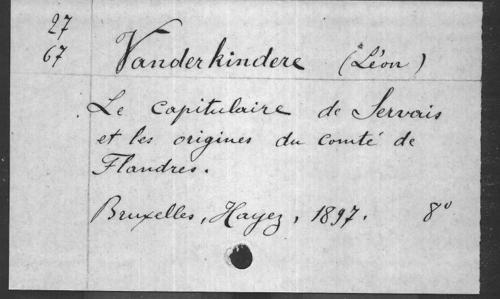 27
67
Vanderkindere (Léon)
Le capitulaire de Servais
et les origines du Comté de
Flandres.
Bruxelles, Hayez, 1897. 8º